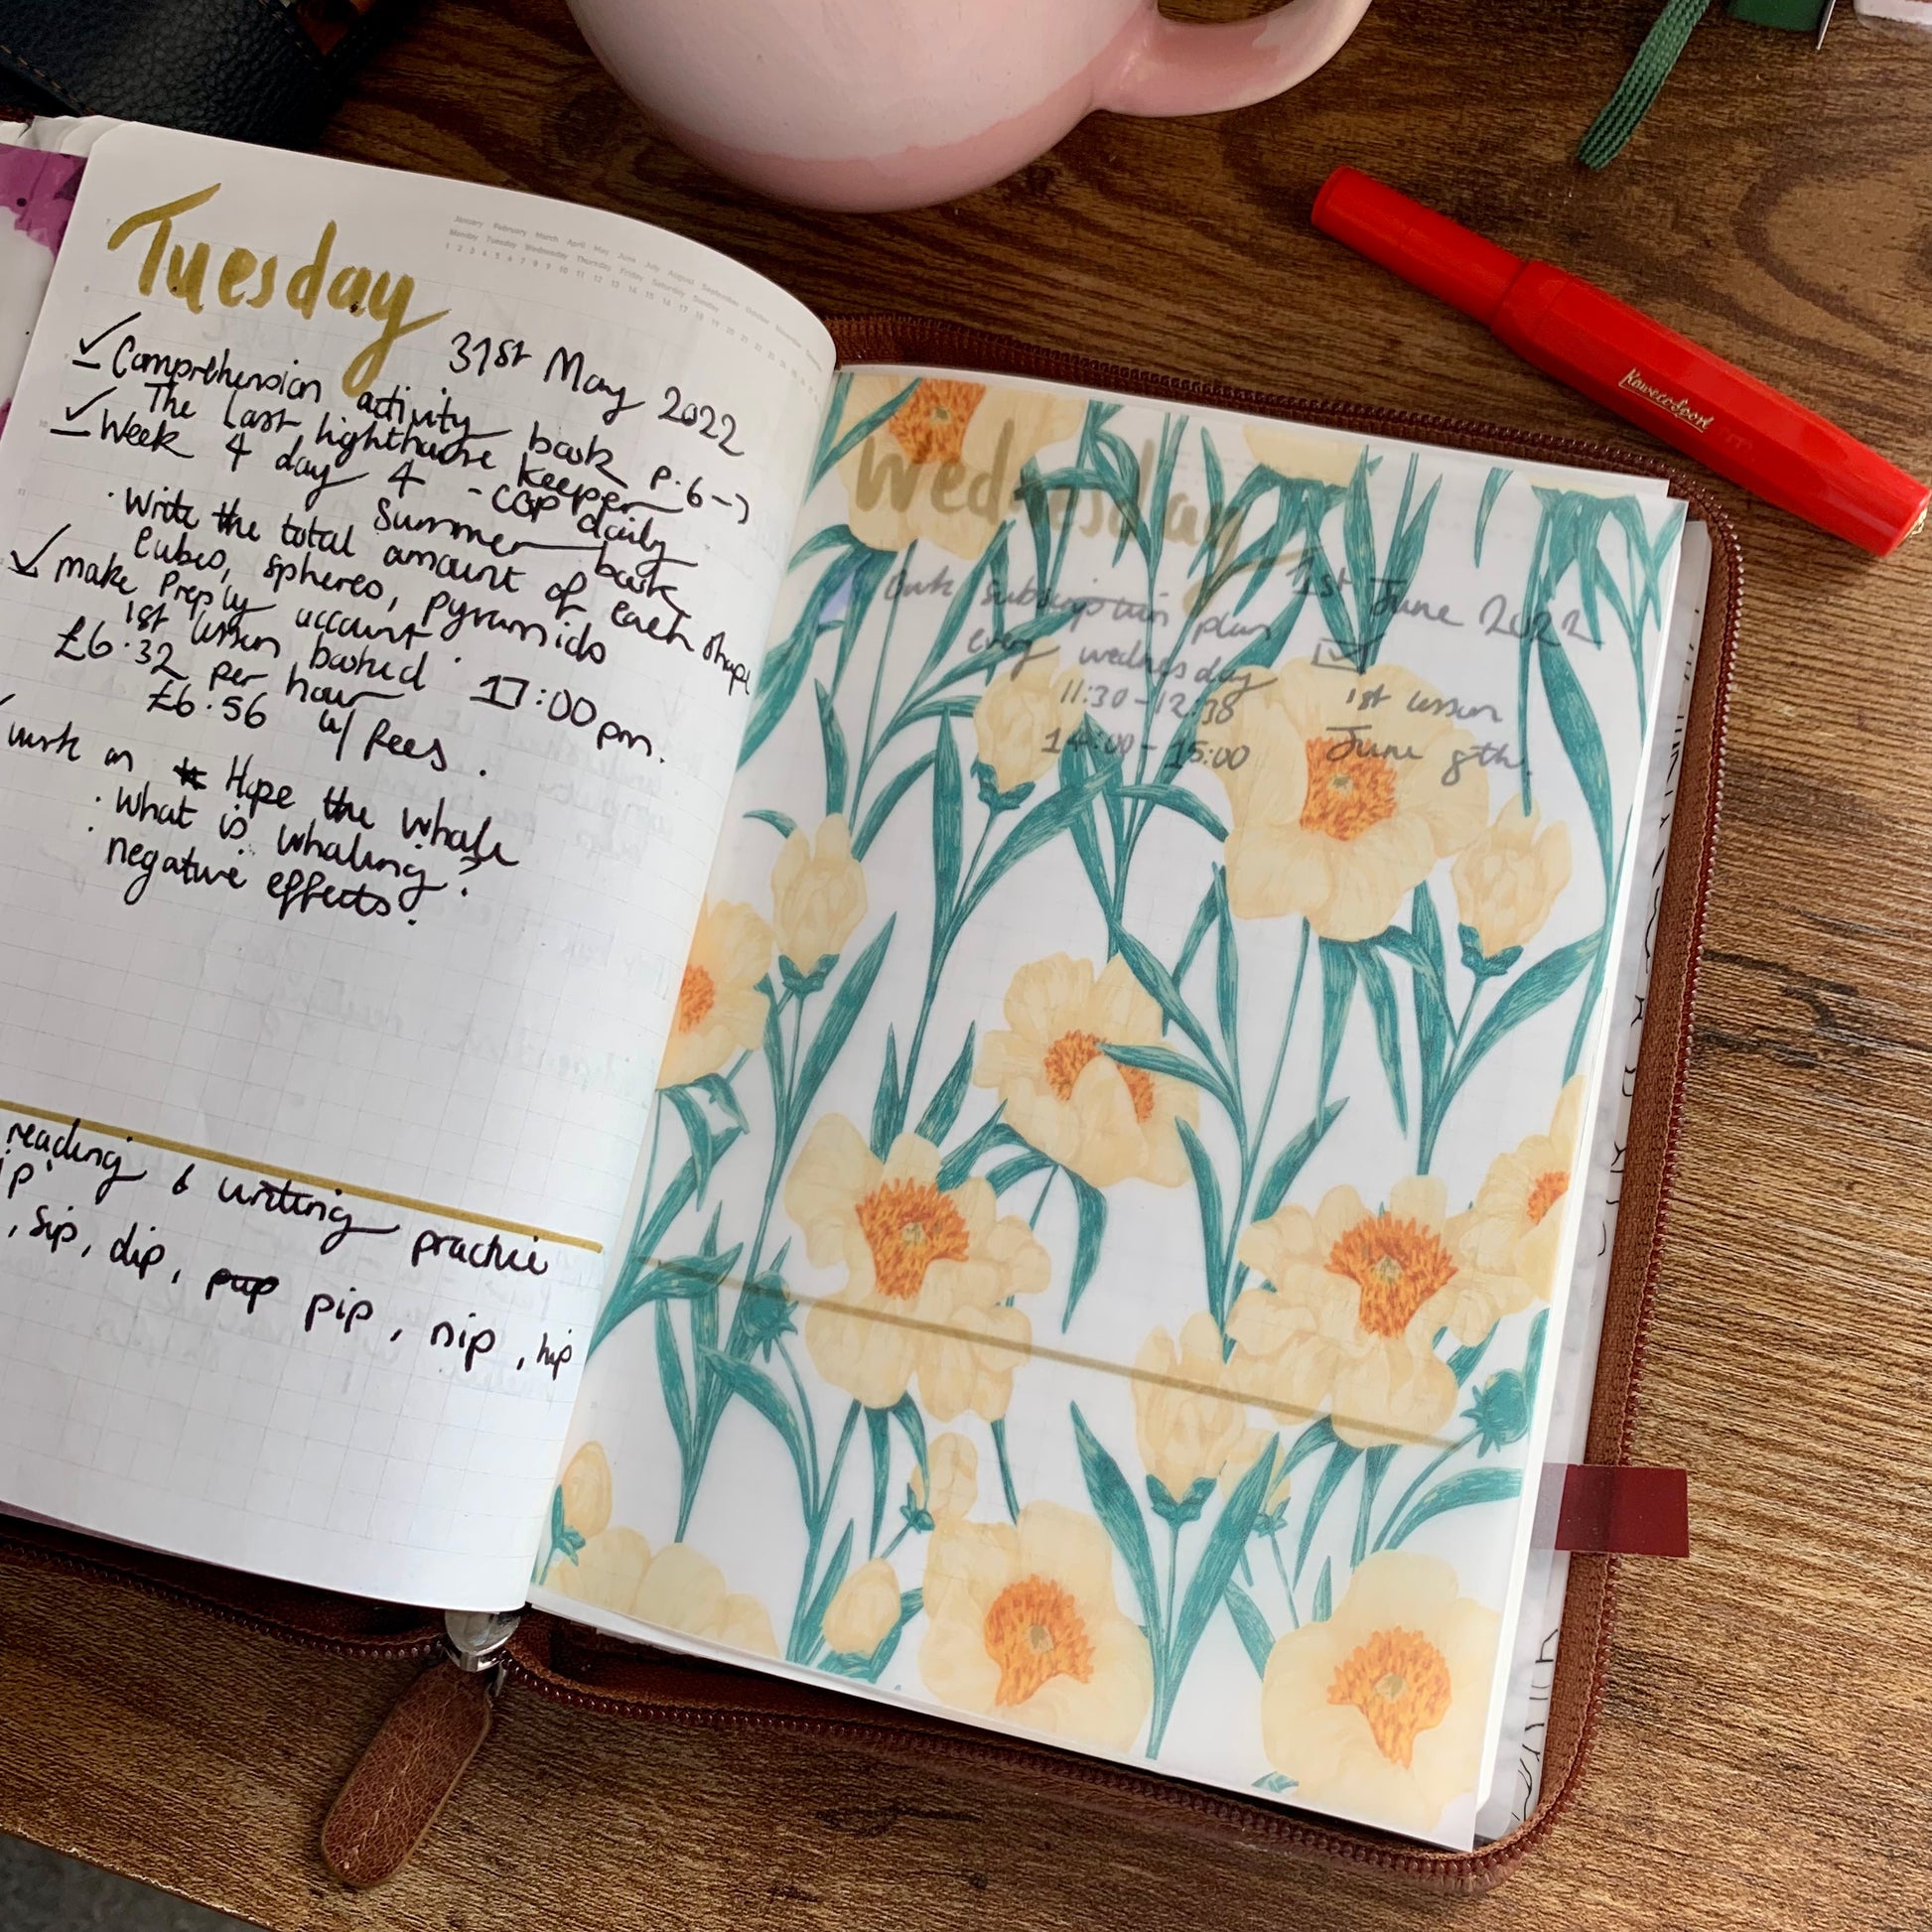 Tuesday
January February March April May June July August September October November
Monday Tuesday Wednesday Thursday Friday Saturday Sunday
1 2 3 4 5 6 7 8 9 10 11 12 13 14 15 16 17 18 19 20 21 22 23 24 25 26
31st May 2022
Comprehension activity book p.6
The Last lighthouse keeper
Week 4 day 4 - CGP daily
Summer book
· Write the total amount of each shape
cubes, spheres, pyramids
make Preply account
1st lesson booked · 17:00pm.
£6.32 per hour
£6.56 w/ fees.
work on Hope the whale
· What is whaling?
· negative effects.
reading & writing practice
ip'
, sip, dip, pup pip, nip, hip
Wednesday
1st June 2022
Book subscription plan
every wednesday
11:30-12:
14:00-15:00
1st lesson
June 8th.
Kaweco Sport